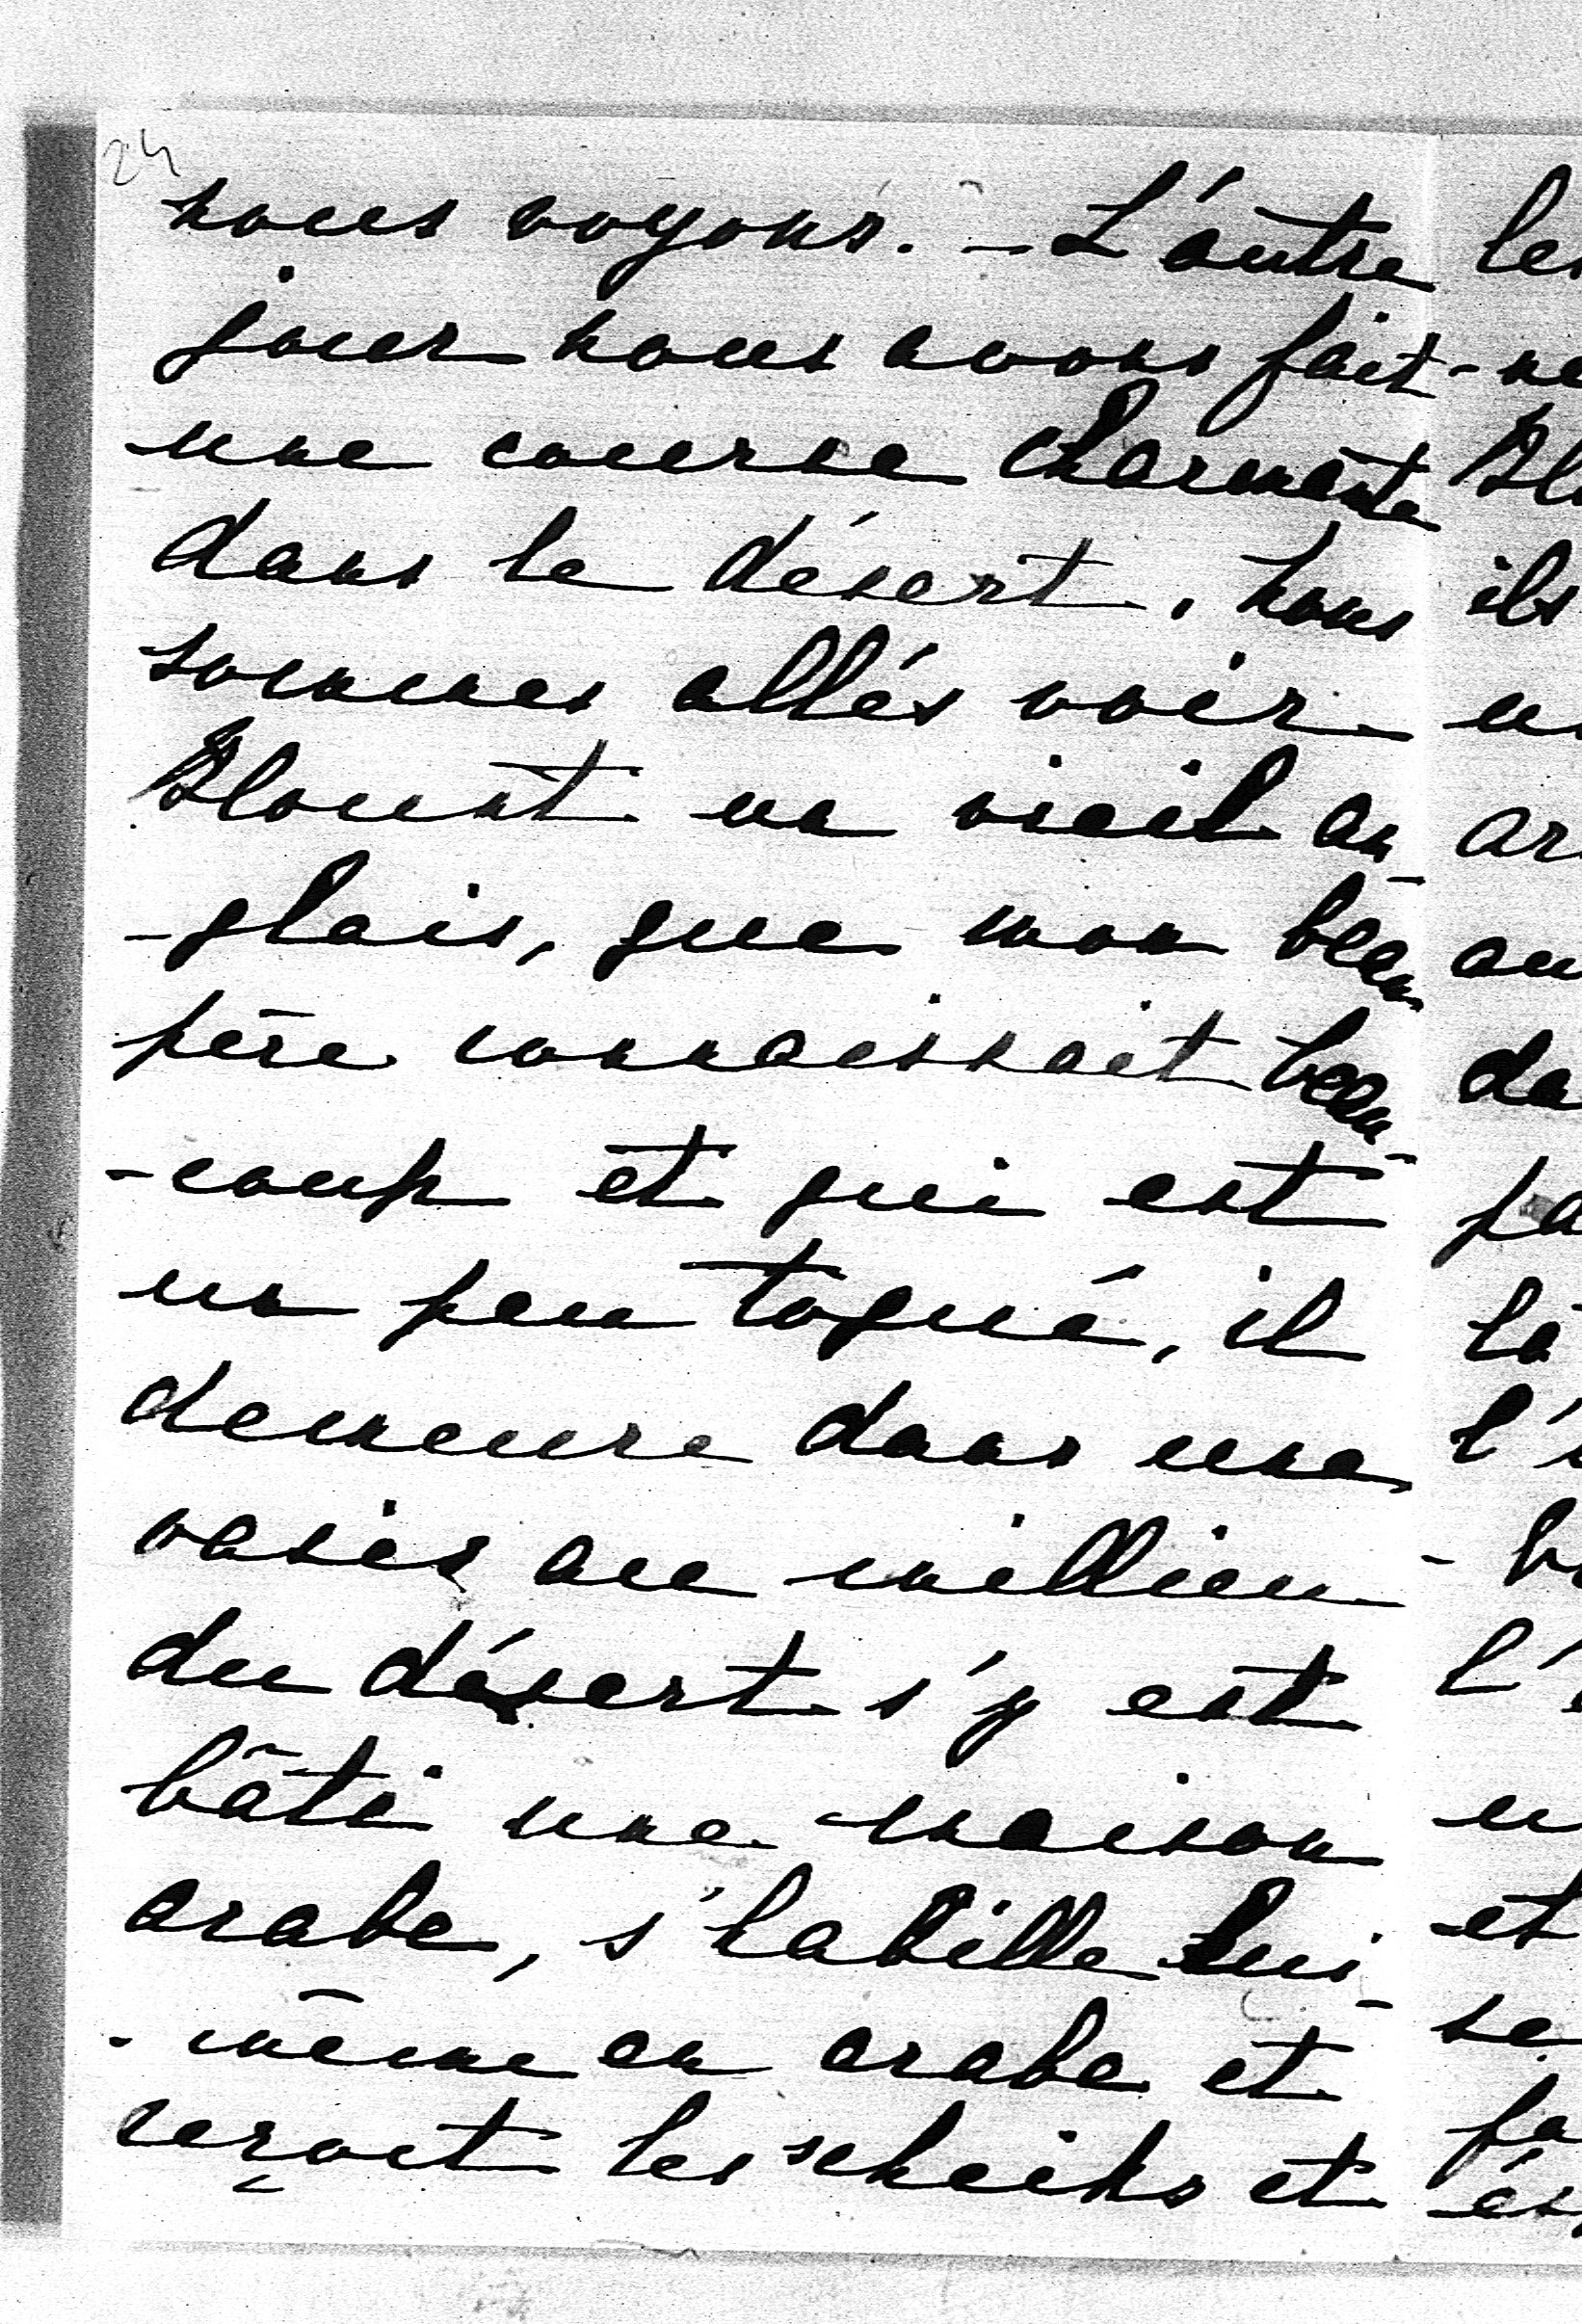 24
nous voyons. - L'autre
jour nous avons fait
une course charmante
dans le désert, nous
sommes allés voir
Blount un vieil an-
-glais, que mon beau
père connaissait beau-
-coup et qui est
un peu toqué, il
demeure dans une
oasis au millieu
du désert s'y est
bâti une maison
arabe, s'habille lui-
-même en arabe et
reçoit les scheiks et